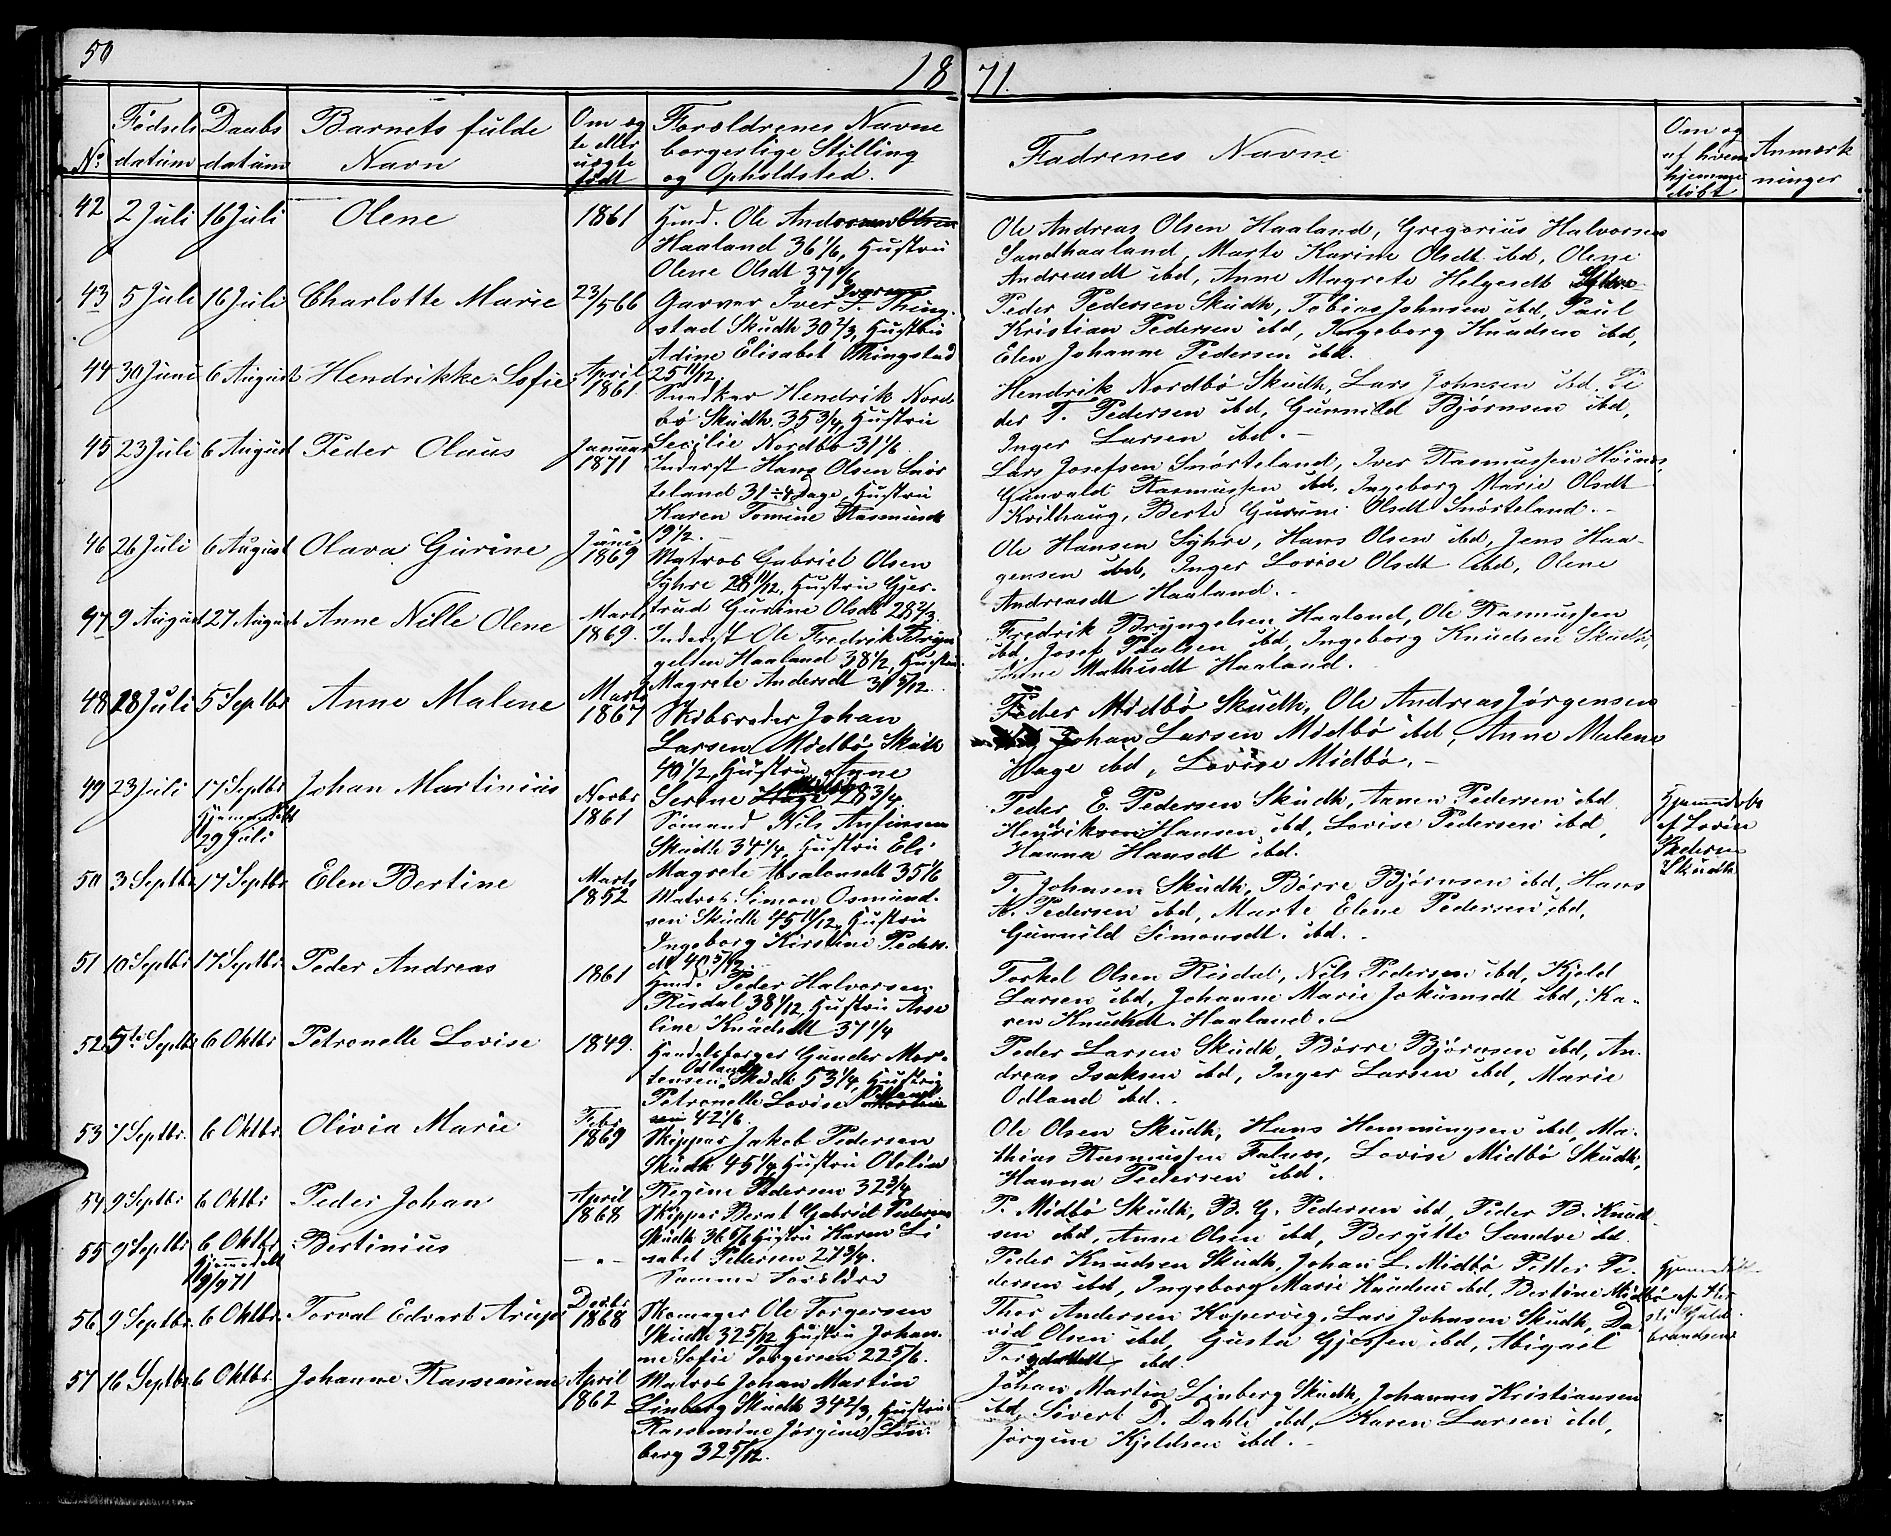 50
18 71.
No Fødsels datum Daabs datum Barnets fulde Navn Om ægte eller uægte født Forældrenes Navne borgerlige Stilling og Opholdsted.
Fadrenes Navne
Om og af hvem hjemmedøbt
Anmærkninger
42 2 Juli 16 Juli Olene 1861 Gmd. Ole Andersen Olsen
Haaland 36 1/6, Hustru
Olene Olsdt 37 1/6
Ole Andreas Olsen Haaland, Gregorius Halvorsen
Sandhaaland, Marte Karine Olsdt ibd, Olene
Andreasdt ibd, Anne Magrete Helgesdt Syhre
43 5 Juli 16 Juli Charlotte Marie 23/5 66 Garver Iver T. Thing-
stad Skudh 30 2/3, Hustru
Adine Elisabet Thingstad
25 11/12.
Peder Pedersen Skudh, Tobias Johnsen ibd, Paul
Kristian Pedersen ibd, Ingeborg Knudsen ibd,
Elen Johanne Pedersen ibd.
44 30 Juni 6 August Hendrikke Sofie April 1861 Snedker Hendrik Nord-
bø Skudh. 35 3/4, Hustru
Secilie Nordbø 31 1/6
Hendrik Nordbø Skudh, Lars Johnsen ibd, Pe
der T. Pedersen ibd, Gunnild Bjørnsen ibd,
Inger Larsen ibd.-
45 23 Juli 6 August Peder Olaus Januar 1871 Inderst Hans Olsen Snør
teland 31 ÷ 4 Dage, Hustru
Karen Tomine Rasmusdt
19 1/2.
Lars Josefsen Snørteland, Iver Rasmussen
Gunvald Rasmussen ibd, Ingeborg Marie Olsdt
Krithaug, Berte Gurine Olsdt Snørteland.-
46 26 Juli 6 August Olava Gurine Juni 1869 Matros Gabriel Olsen
Syhre 28 11/12, Hustru Gjer-
trud Gurine Olsdt 28 2/3
Ole Hansen Syhre, Hans Olsen ibd, Jens Haa-
gensen ibd, Inger Lovise Olsdt ibd, Olene
Andreasdt Haaland.-
47 9 August 27 August Anne Nille Olene Marts 1869. Inderst Ole Fredrik Bryn
gelsen Haaland 38 1/2, Hustru
Magrete Andersdt 31 5/12.
Fredrik Bryngelsen Haaland, Ole Rasmussen
ibd, Josef Paulsen ibd, Ingeborg Knudsen Skudh,
Mathisdt Haaland.-
48 28 Juli 5 Septbr Anne Malene Marts 1867 Skibsreder Johan
Larsen Midbø, Skudh
40 1/2, Hustru Anne
Serine Hage Midbø 28 3/4.
Peder Midbø Skudh, Ole Andreas Jørgensen
Johan Larsen Midbø ibd, Anne Malene
Hage ibd, Lovise Midbø.-
49 23 Juli 17 Septbr Hjemmedøbt 29 Juli Johan Martinius Novbr 1861 Sømand Nils Anfinsen
Skudh 34 1/4, Hustru Eli
Magrete Absalonsdt 35 1/6
Peder E. Pedersen Skudh, Pedersen ibd
Henrik Hansen ibd, Lovise Pedersen ibd,
Hanna Hansdt ibd.
af Lovise Pedersen Skudh
50 3 Septbr 17 Septbr Elen Bertine Marts 1852 Matros Simon Osmund-
sen Skudh 45 11/12, Hustru
Ingeborg Kirstine Peders-
dt 40 5/12
T. Johnsen Skudh, Børre Bjørnsen ibd, Hans
K. Pedersen ibd, Marte Elene Pedersen ibd,
Gunnild Simonsdt. ibd.-
51 10 Septbr 17 Septbr. Peder Andreas 1861 Gmd. Peder Halvorsen
Risdal 38 1/12, Hustru Asse
line Knudsdt 37 1/4
Torkel Olsen Risdal, Nils Pedersen ibd, Kjeld
Larsen ibd, Johanne Marie Jokumsdt ibd, Ka-
ren Knudsdt. Haaland.
52 5te Septbr 6 Oktbr Petronelle Lovise 1849. Handelsborger Gunder Mor-
tensen Odland Skudh 53 1/4, Hustru
Petronelle Lovise
42 1/6
Peder Larsen Skudh, Børre Bjørnsen ibd, An-
dreas Isaksen ibd, Inger Larsen ibd, Marie
Odland ibd.-
53 7 Septbr. 6 Oktbr. Olivia Marie Febr 1869 Skipper Jakob Pedersen
Skudh 45 1/4 Hustru Otelin
Regine Pedersen 32 3/4
Ole Olsen Skudh, Hans Hemmingsen ibd, Ma-
thias Rasmussen Falnes, Lovise Midbø Skudh,
Hanna Pedersen ibd.
54 9 Septbr 6 Oktbr Peder Johan April 1868 Skipper Bernt Gabriel Pedersen
Skudh 36 5/6 Hustru Karen Li
sabet Pedersen 27 3/4.
P. Midbø Skudh, B. G. Pedersen ibd, Peder B. Knud-
sen ibd, Anne Olsen ibd, Bergitte Sandve ibd.
55 9 Septbr 6 Oktbr Hjemmedøbt 9/9 71 Bertinius - " - Samme Forældre
Peder Knudsen Skudh, Johan L. Midbø Petter Pe-
dersen ibd, Ingeborg Marie Knudsen ibd, Bertine Midbø
Hjemmedøbt af Guldbrandsen
56 9 Septbr. 6 Oktbr. Torval Edvart Decbr 1868 Skomager Ole Torgersen
Skudh 32 5/12 Hustru Johan-
ne Sofie Torgersen 22 5/6.
Thor Andersen Kopervig, Lars Johnsen Skudh, Da-
vid Olsen ibd, Gusta Gjessen ibd, Abigael
ibd.
57 16 Septbr 6 Oktbr. Johanne Rassemine April 1862 Matros Johan Martin
Linberg Skudh 34 2/3, Hustru
Rassemine Jørgine Lin
berg 32 5/12.
Johan Martin Linberg Skudh, Johannes Kristiansen
ibd, Sivert D. Dahle ibd, Karen Larsen ibd,
Jørgine Kjeldsen ibd.-